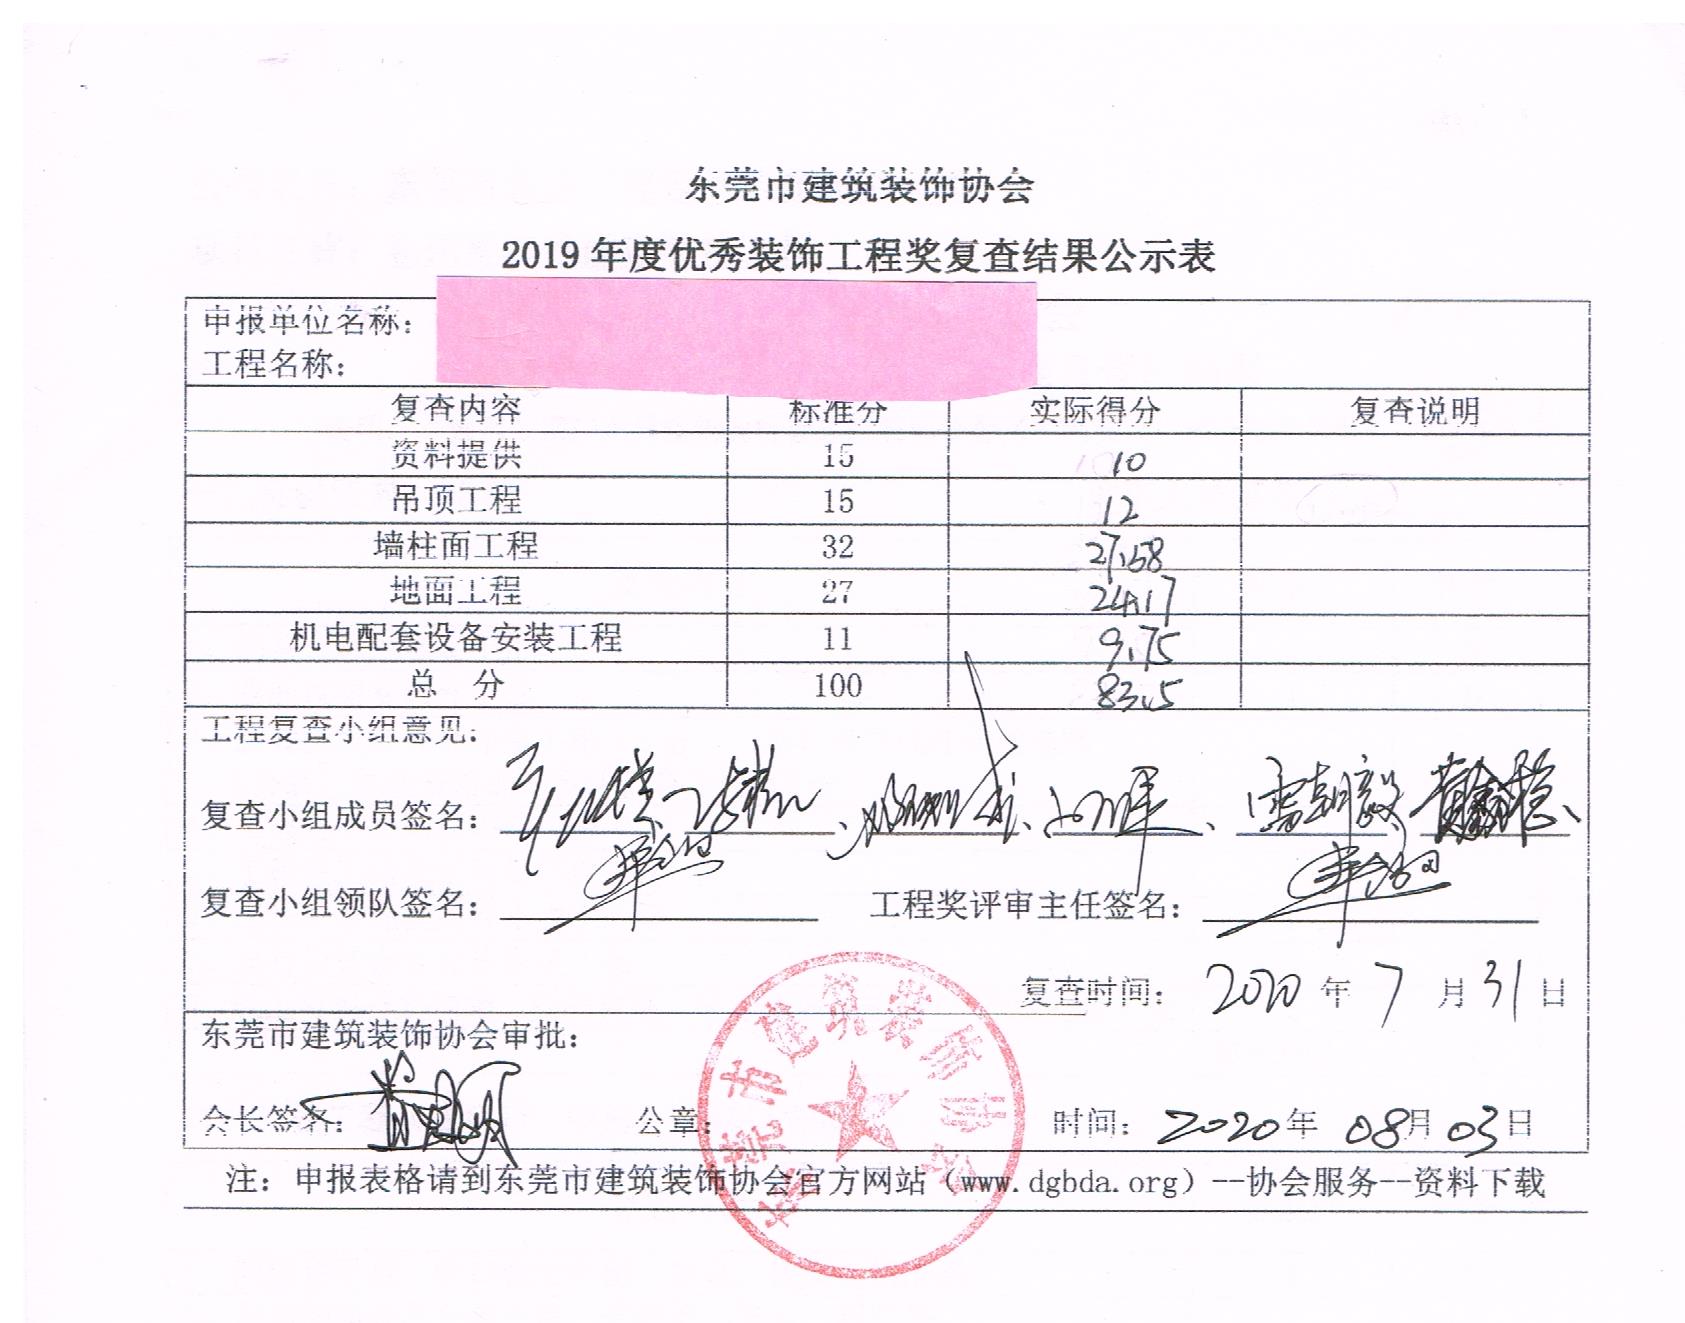 东莞市建筑装饰协会
2019 年度优秀装饰工程奖复查结果公示表
申报单位名称：
工程名称：
复查内容 标准分 实际得分 复查说明
资料提供 15 10
吊顶工程 15 12
墙柱面工程 32 27.58
地面工程 27 24.17
机电配套设备安装工程 11 9.75
总 分 100 83.5
工程复查小组意见：
复查小组成员签名： 、 、 、
复查小组领队签名： 工程奖评审主任签名：
复查时间： 2020 年 7 月 31 日
东莞市建筑装饰协会审批：
会长签名： 公章： 时间： 2020 年 08 月 03 日
东莞市建筑装饰协会
注：申报表格请到东莞市建筑装饰协会官方网站（www.dgbda.org）--协会服务--资料下载